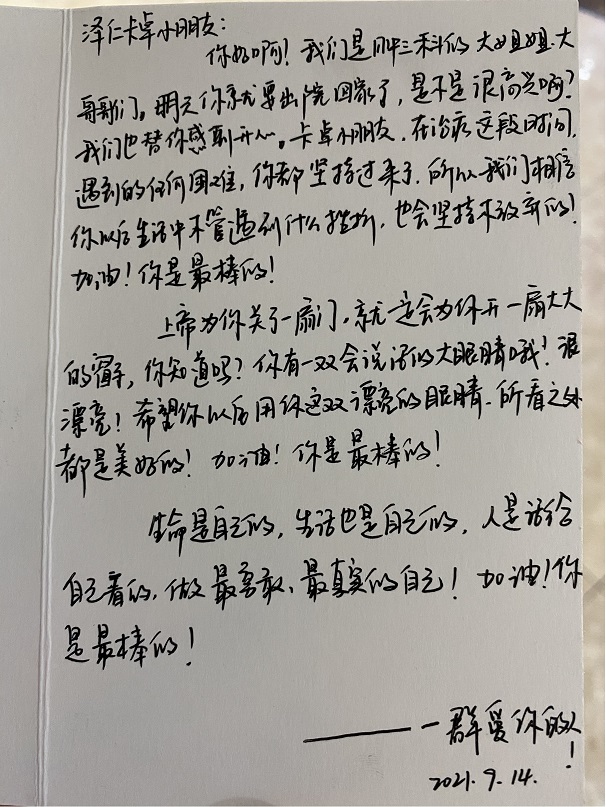 泽仁卡卓小朋友：
你好啊！我们是肿三科的大姐姐、大
哥哥们。明天你就要出院回家了，是不是很高兴啊？
我们也替你感到开心。卡卓小朋友，在治疗这段时间，
遇到的任何困难，你都坚持过来了，所以我们相信
你以后生活中不管遇到什么挫折，也会坚持不放弃的！
加油！你是最棒的！
上帝为你关了一扇门，就一定会为你开一扇大大
的窗子，你知道吗？你有一双会说话的大眼睛哦！很
漂亮！希望你以后用你这双漂亮的眼睛，所看之处
都是美好的！加油！你是最棒的！
生命是自己的，生活也是自己的，人是活给
自己看的，做最勇敢、最真实的自己！加油！你
是最棒的！
——一群爱你的人！
2021.9.14.